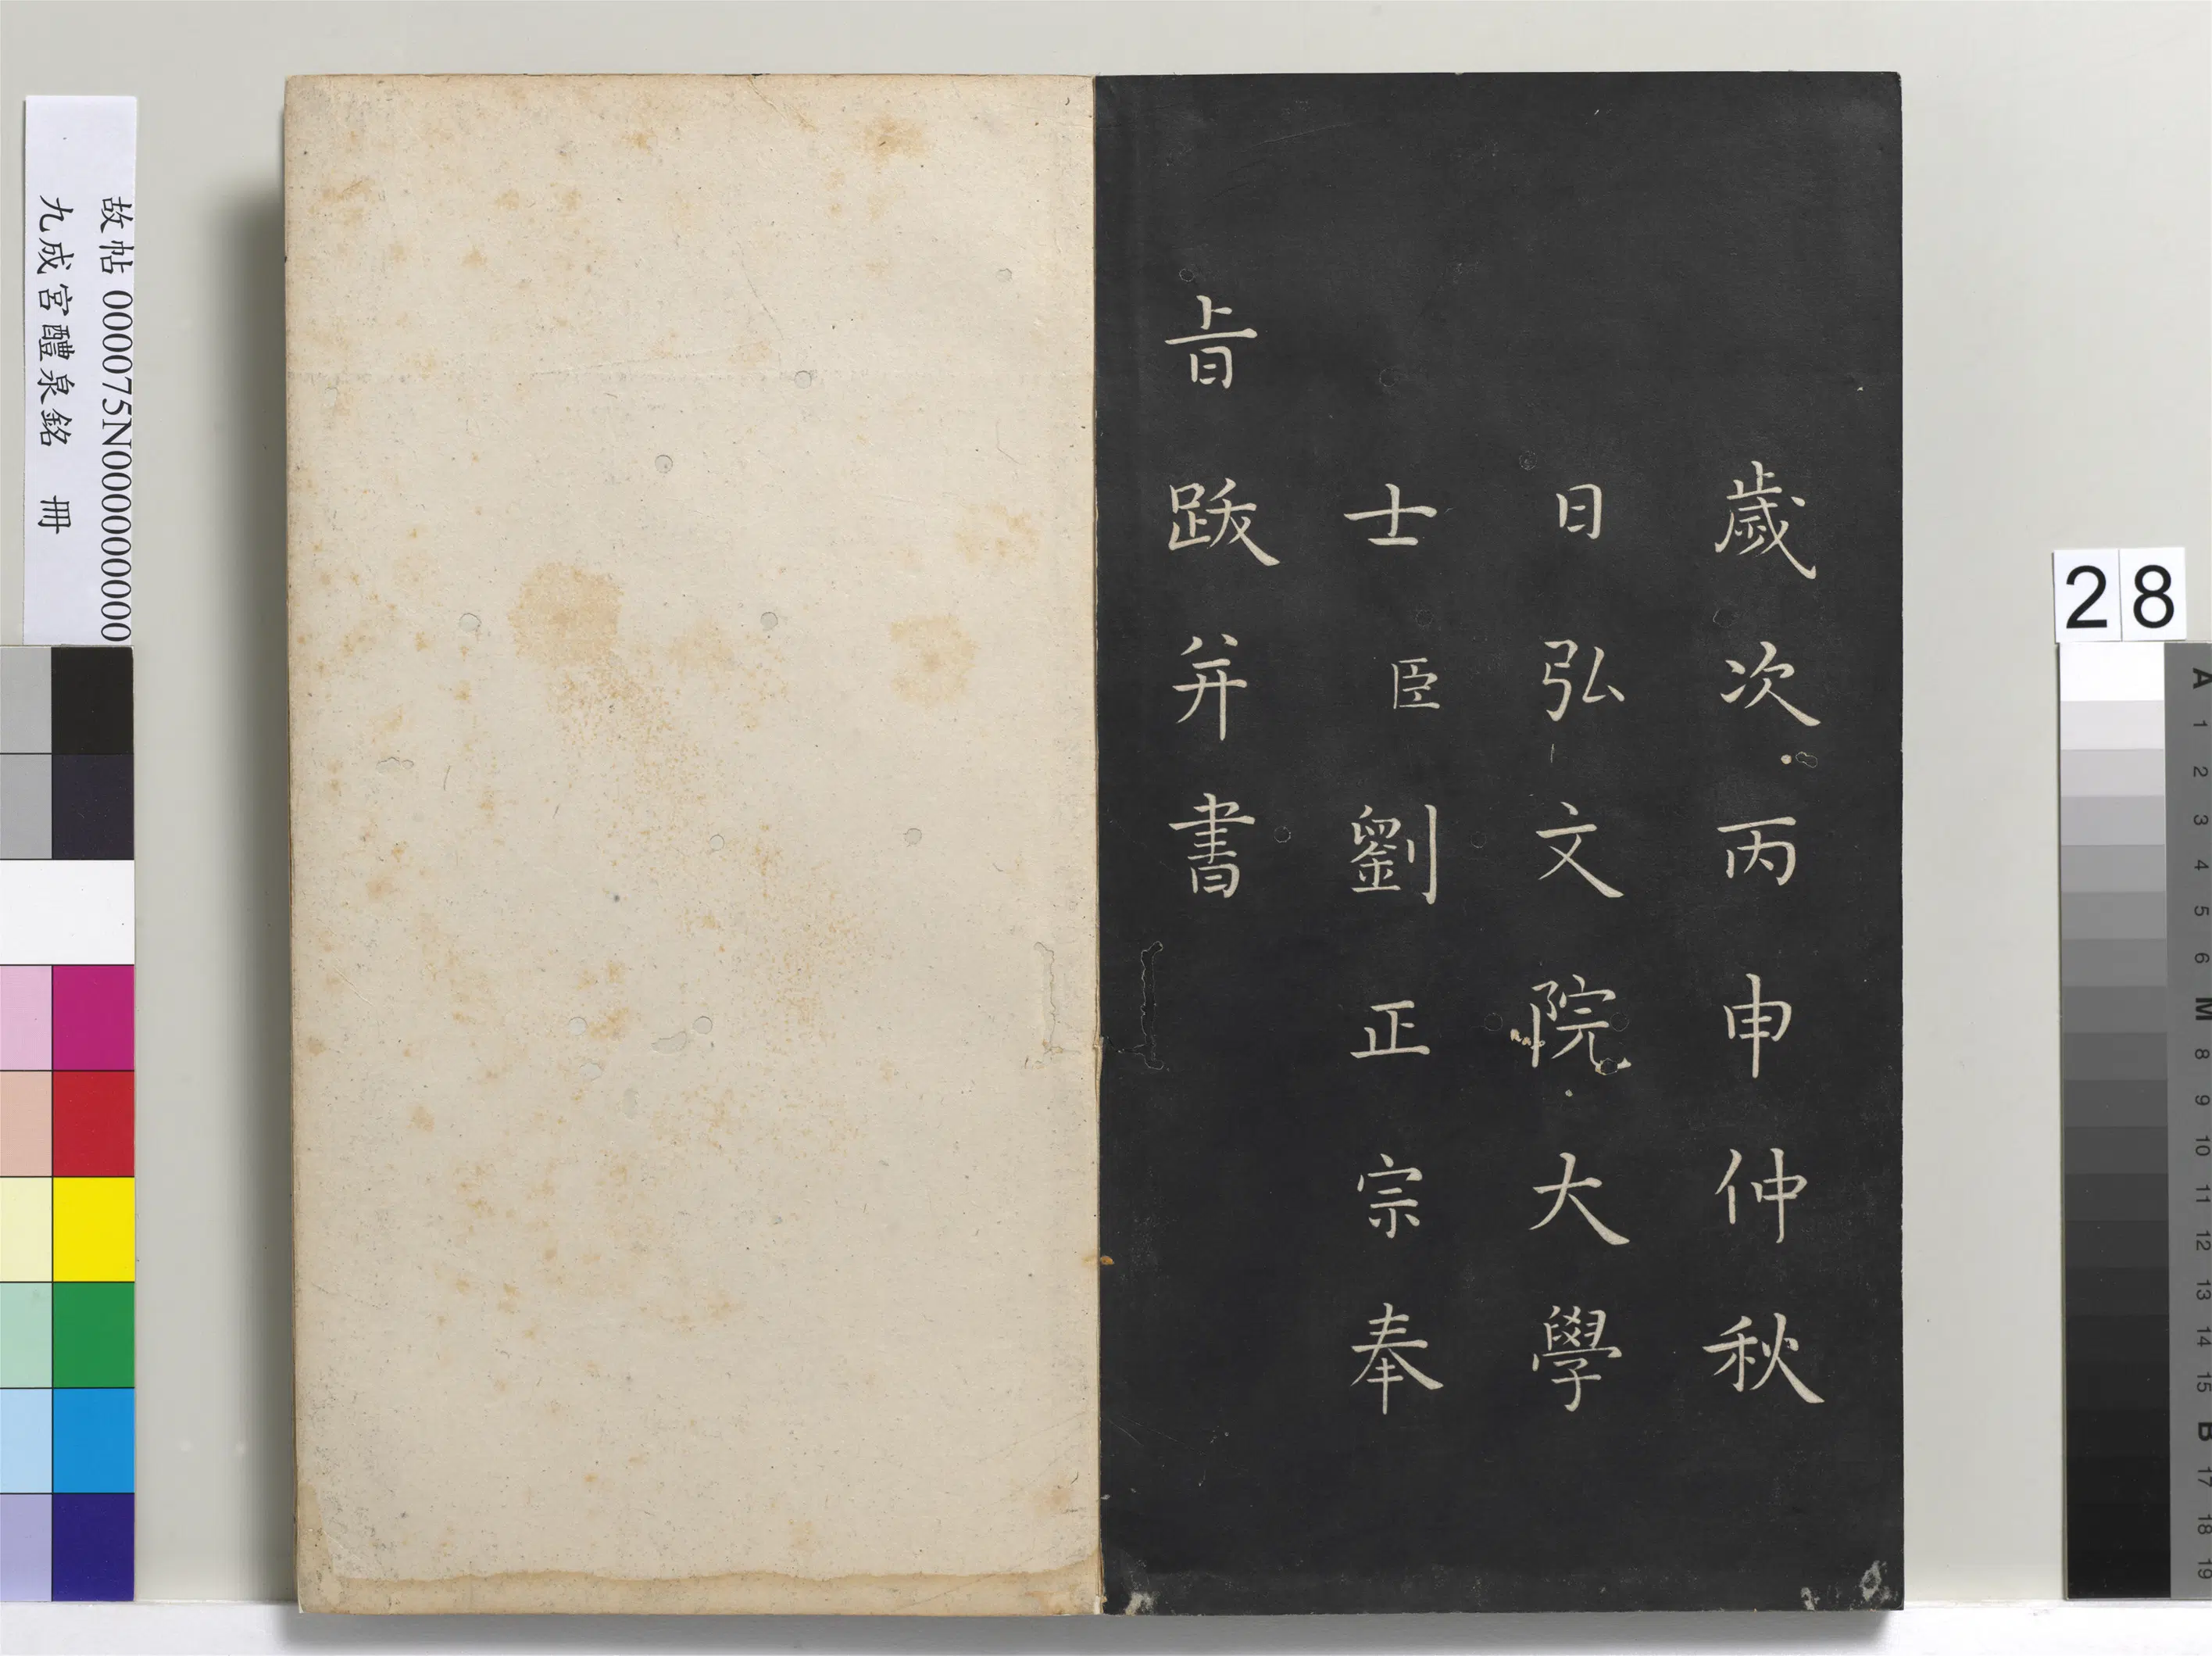 歲次丙申仲秋
日弘文院大學
士臣劉正宗奉
旨跋并書
故帖 000075N000000000
九成宮醴泉銘 冊
28
A
1
2
3
4
5
6
M
8
9
10
11
12
13
14
15
B
17
18
19